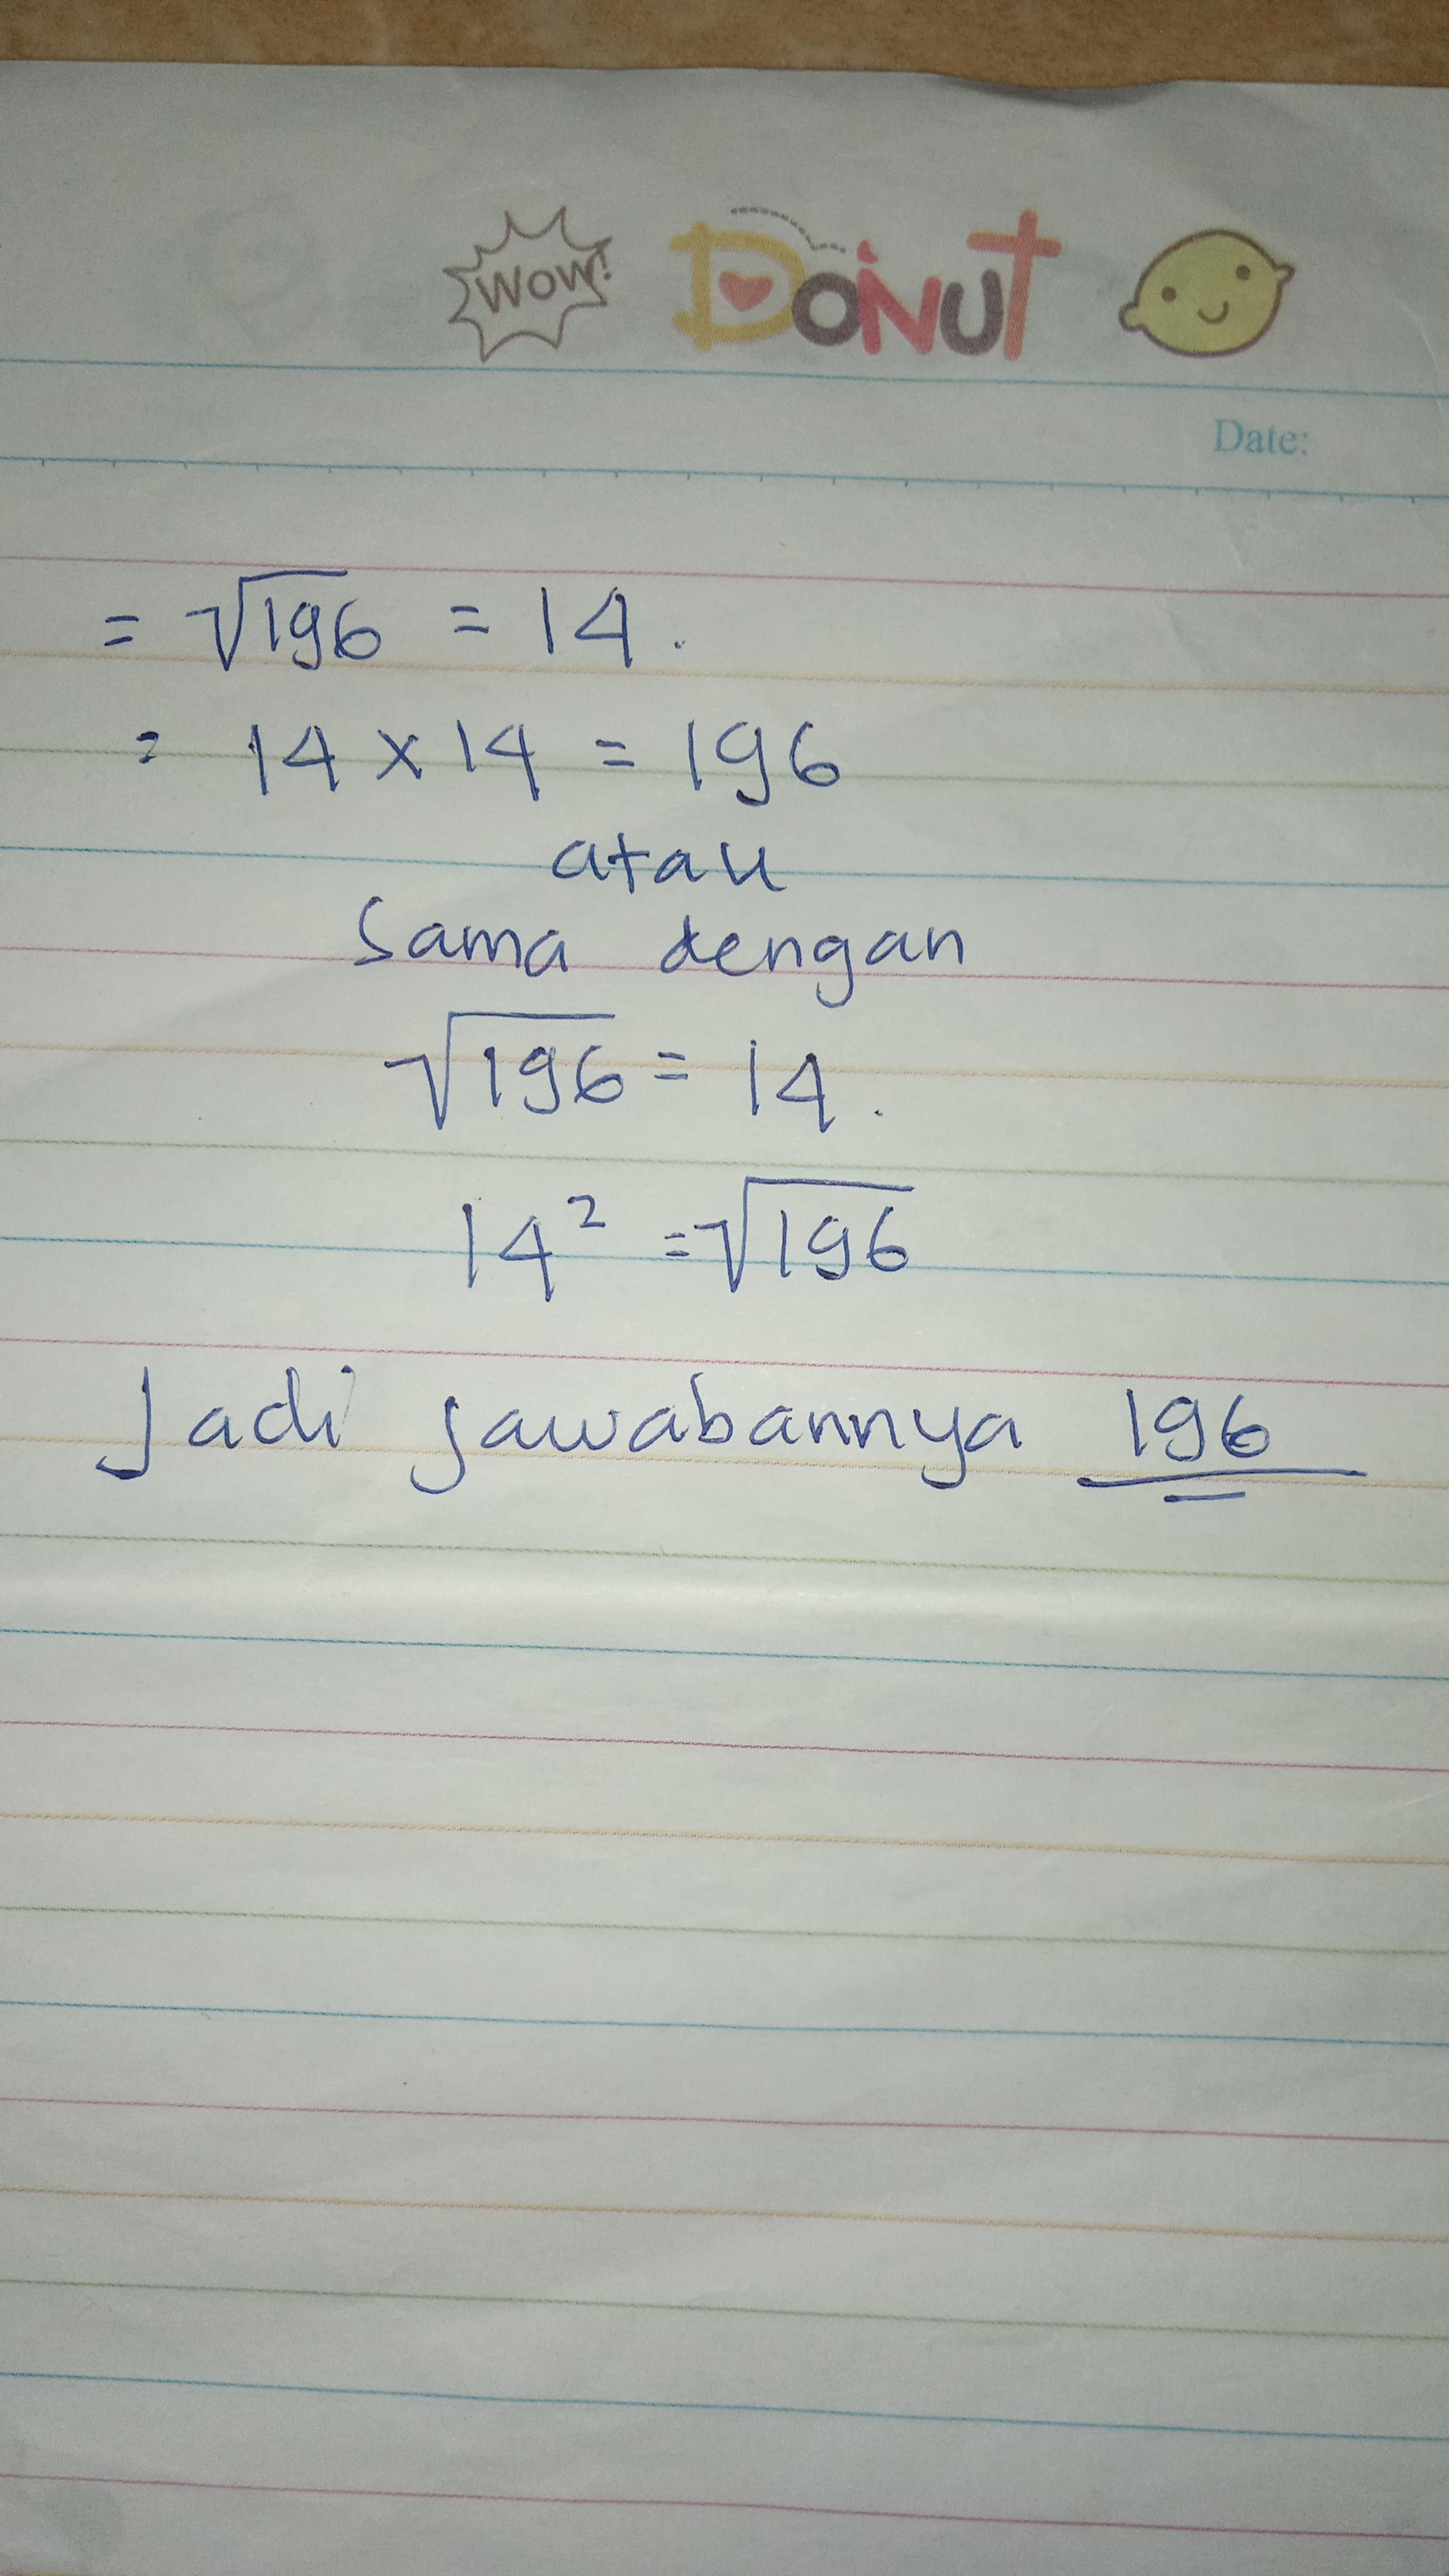 WOW! DONUT
Date:
= √196 = 14.
= 14 × 14 = 196
atau
Sama dengan
√196 = 14.
14² = √196
Jadi jawabannya 196